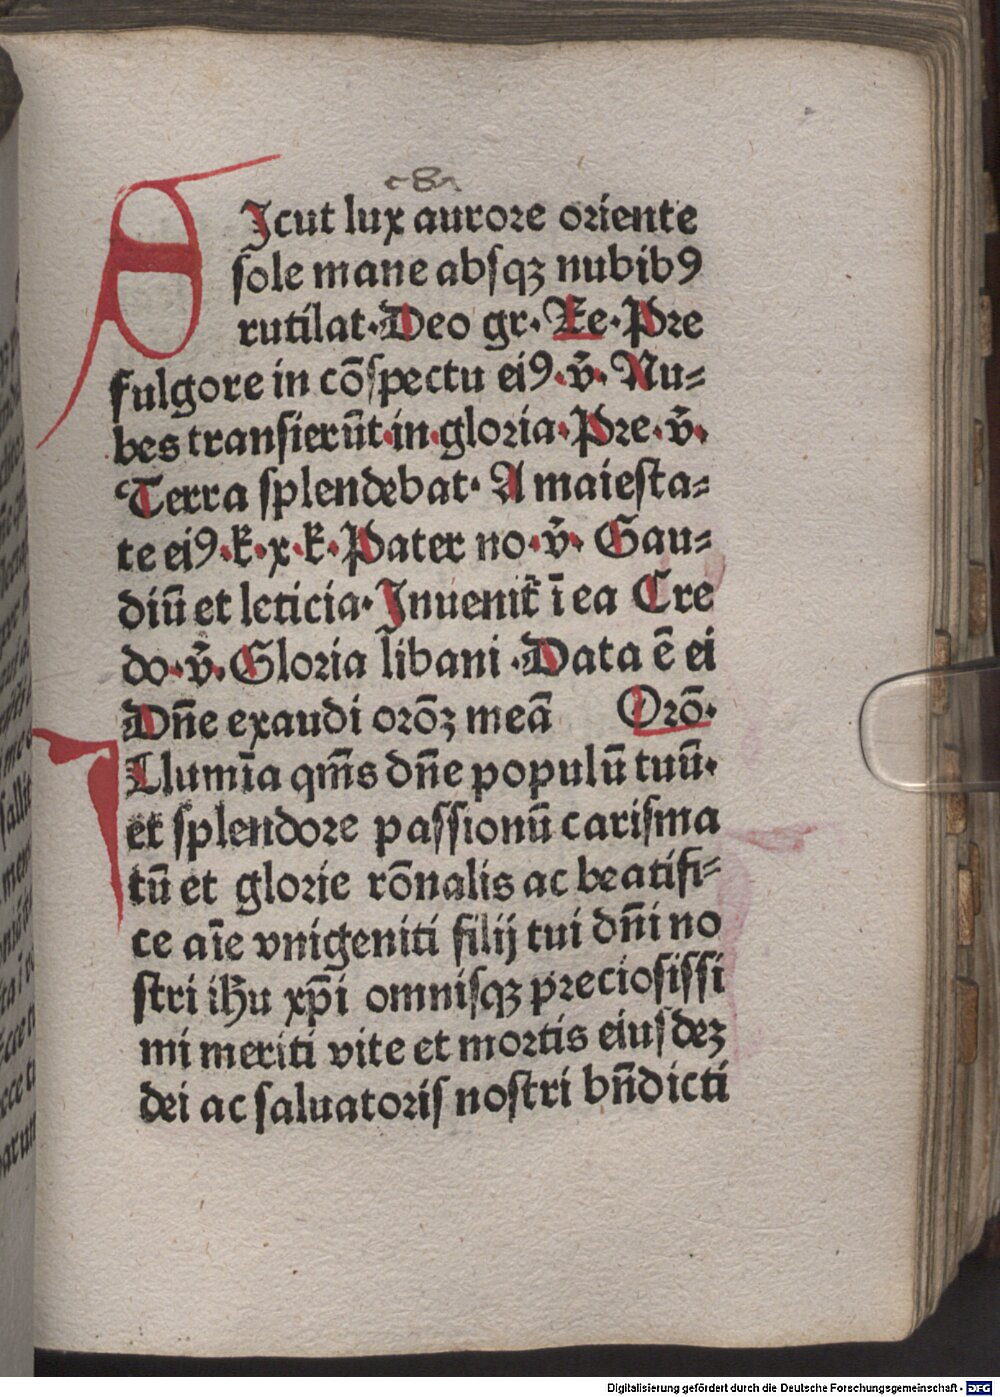 SIcut lux aurore oriente
sole mane absqꝫ nubibꝰ
rutilat·Deo gr·Re·Pre
fulgore in cōspectu eiꝰ·v̄·Nu⸗
bes transierūt·in·gloria·Pre·v̄·
Terra splendebat·A maiesta⸗
te eiꝰ·k̄·x·k̄·Pater no·v̄·Gau⸗
diū et leticia·Inuenit̄ ī ea Cre
do·v̄·Gloria libani·Data ē ei
Dn̄e exaudi orōꝫ meā Orō·
ILlumīa qm̄s dn̄e populū tuū·
et splendore passionū carisma
tū et glorie rōnalis ac beatifi⸗
ce aīe vnigeniti filij tui dn̄i no
stri ih̄u xp̄i omnisqꝫ preciosissi
mi meriti vite et mortis eiusdeꝫ
dei ac saluatoris nostri bn̄dicti
Digitalisierung gefördert durch die Deutsche Forschungsgemeinschaft - DFG